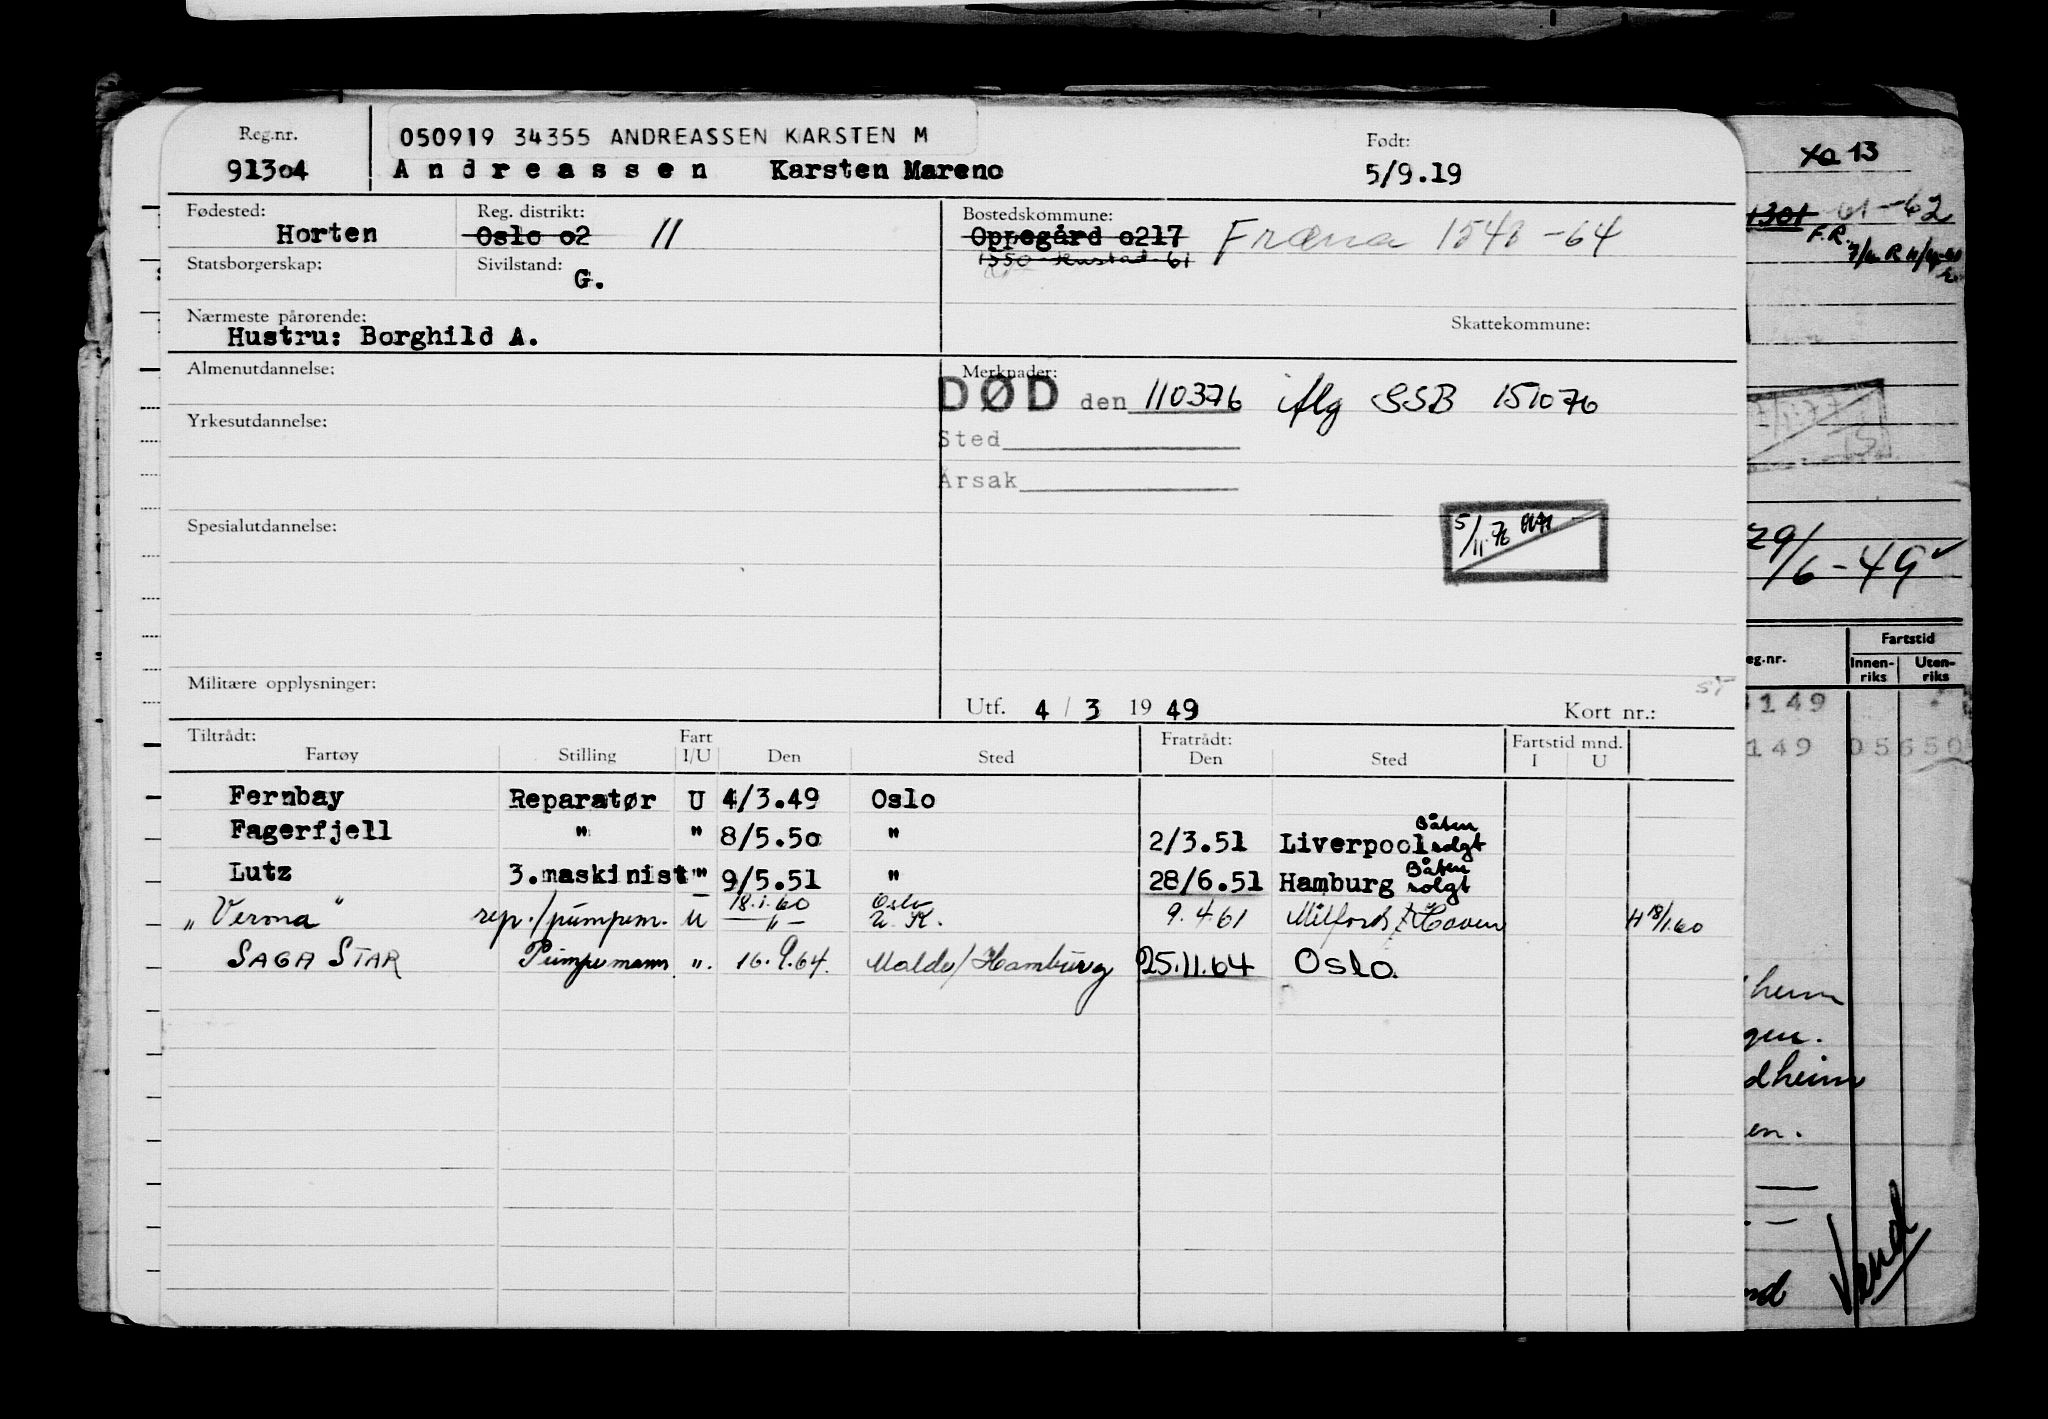 Reg.nr.
050919 34355 ANDREASSEN KARSTEN M
Født:
91304 Andreassen Karsten Mareno 5/9.19
Fødested: Reg. distrikt: Bostedskommune:
Horten Oslo o2 11 Oppegård o217 Fræna 1548 -64
Statsborgerskap: Sivilstand:
G.
Nærmeste pårørende: Skattekommune:
Hustru: Borghild A.
Almenutdannelse: Merknader:
DØD den 110376 iflg SSB 151076
Yrkesutdannelse:
Sted
Årsak
Spesialutdannelse:
5/11.76
Militære opplysninger:
Utf. 4 / 3 19 49 Kort nr.:
Tiltrådt: Fart Fratrådt: Fartstid mnd.
Fartøy Stilling I/U Den Sted Den Sted I U
Fernbay Reparatør U 4/3.49 Oslo
Fagerfjell " " 8/5.50 " 2/3.51 Liverpool Båten solgt
Lutz 3.maskinist " 9/5.51 " 28/6.51 Hamburg Båten solgt
18.1.60 Oslo
"Verma" rep./pumpem. U —"— U.K. 9.4.61 Milford Haven H 18/1.60
SAGA STAR Pumpemann ". 16.9.64. Molde/Hamburg 25.11.64 Oslo.
13
1301 61-62
F.R.
29/6-49
eg.nr. Fartstid
Innen-riks Uten-riks
149
149 05650
heim
gen.
dheim
en.
Vend